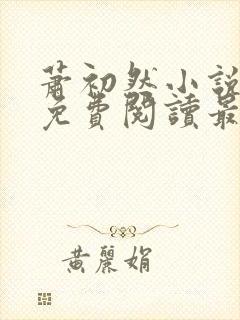 蕭初然小說
免費閱讀最
黃麗娟